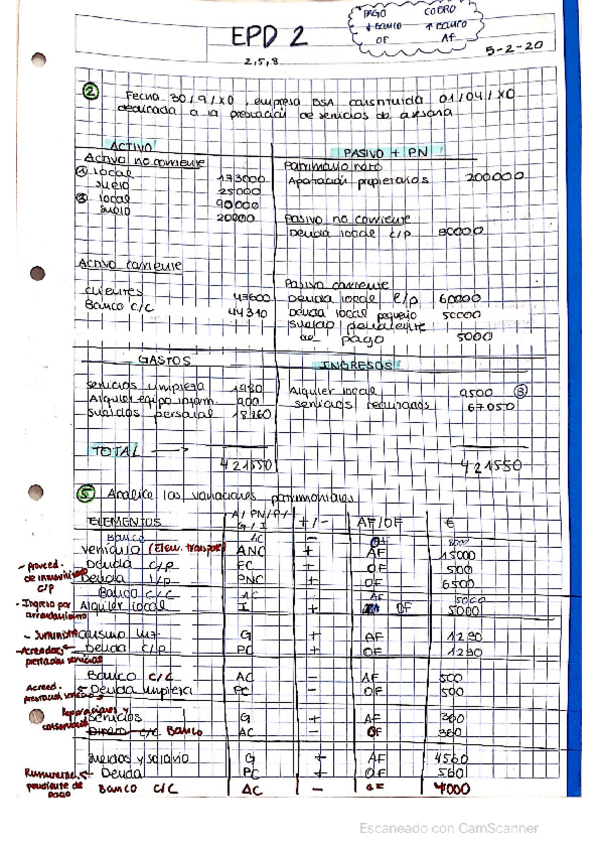 PAGO COBRO
↓ Banco ↑ Banco
OF AF
EPD 2
5-2-20
2,5,8
② Fecha 30/9/X0, empresa BSA constituida 01/04/X0
dedicada a la prestación de servicios de asesoría
ACTIVO PASIVO + PN
Activo no corriente Patrimonio neto
local 173000 Aportación propietarios 200000
suelo 25000
local 90000
suelo 20000 Pasivo no corriente
Deuda local
Activo corriente
Pasivo corriente
clientes 47600 Deuda local 60000
Banco c/c 44310 Deuda local pequeño 50000
sueldo pendiente
de pago 5000
GASTOS INGRESOS
servicios limpieza Alquiler local 9500 ③
Alquiler equipo inform. 900 servicios realizados 67050
sueldos personal
TOTAL → 421550 421550
⑤ Analice las variaciones patrimoniales
ELEMENTOS A/PN/P/G/I +/- AF/OF €
Banco AC - OF
vehículo (Elem. transpor) ANC + AF 15000
- Proveed. de inmovilizado c/p
Deuda c/p PC + OF 500
Deuda l/p PNC + OF 6500
Banco c/c AC AF 5000
- Ingreso por arrendamiento
Alquiler local I + OF 5000
- Suministro
consumo luz G + AF 1290
- Acreedores prestación servicios
Deuda c/p PC + OF 1290
Banco c/c AC - AF 500
Acreed. prestación servicios
Deuda limpieza PC - OF 500
Reparaciones y conservación
servicios G + AF 300
Dinero c/c Banco AC - OF 300
sueldos y salario G + AF 4560
Remunerac. pendiente de pago
Deuda PC + OF 560
Banco c/c AC - OF 4000
Escaneado con CamScanner